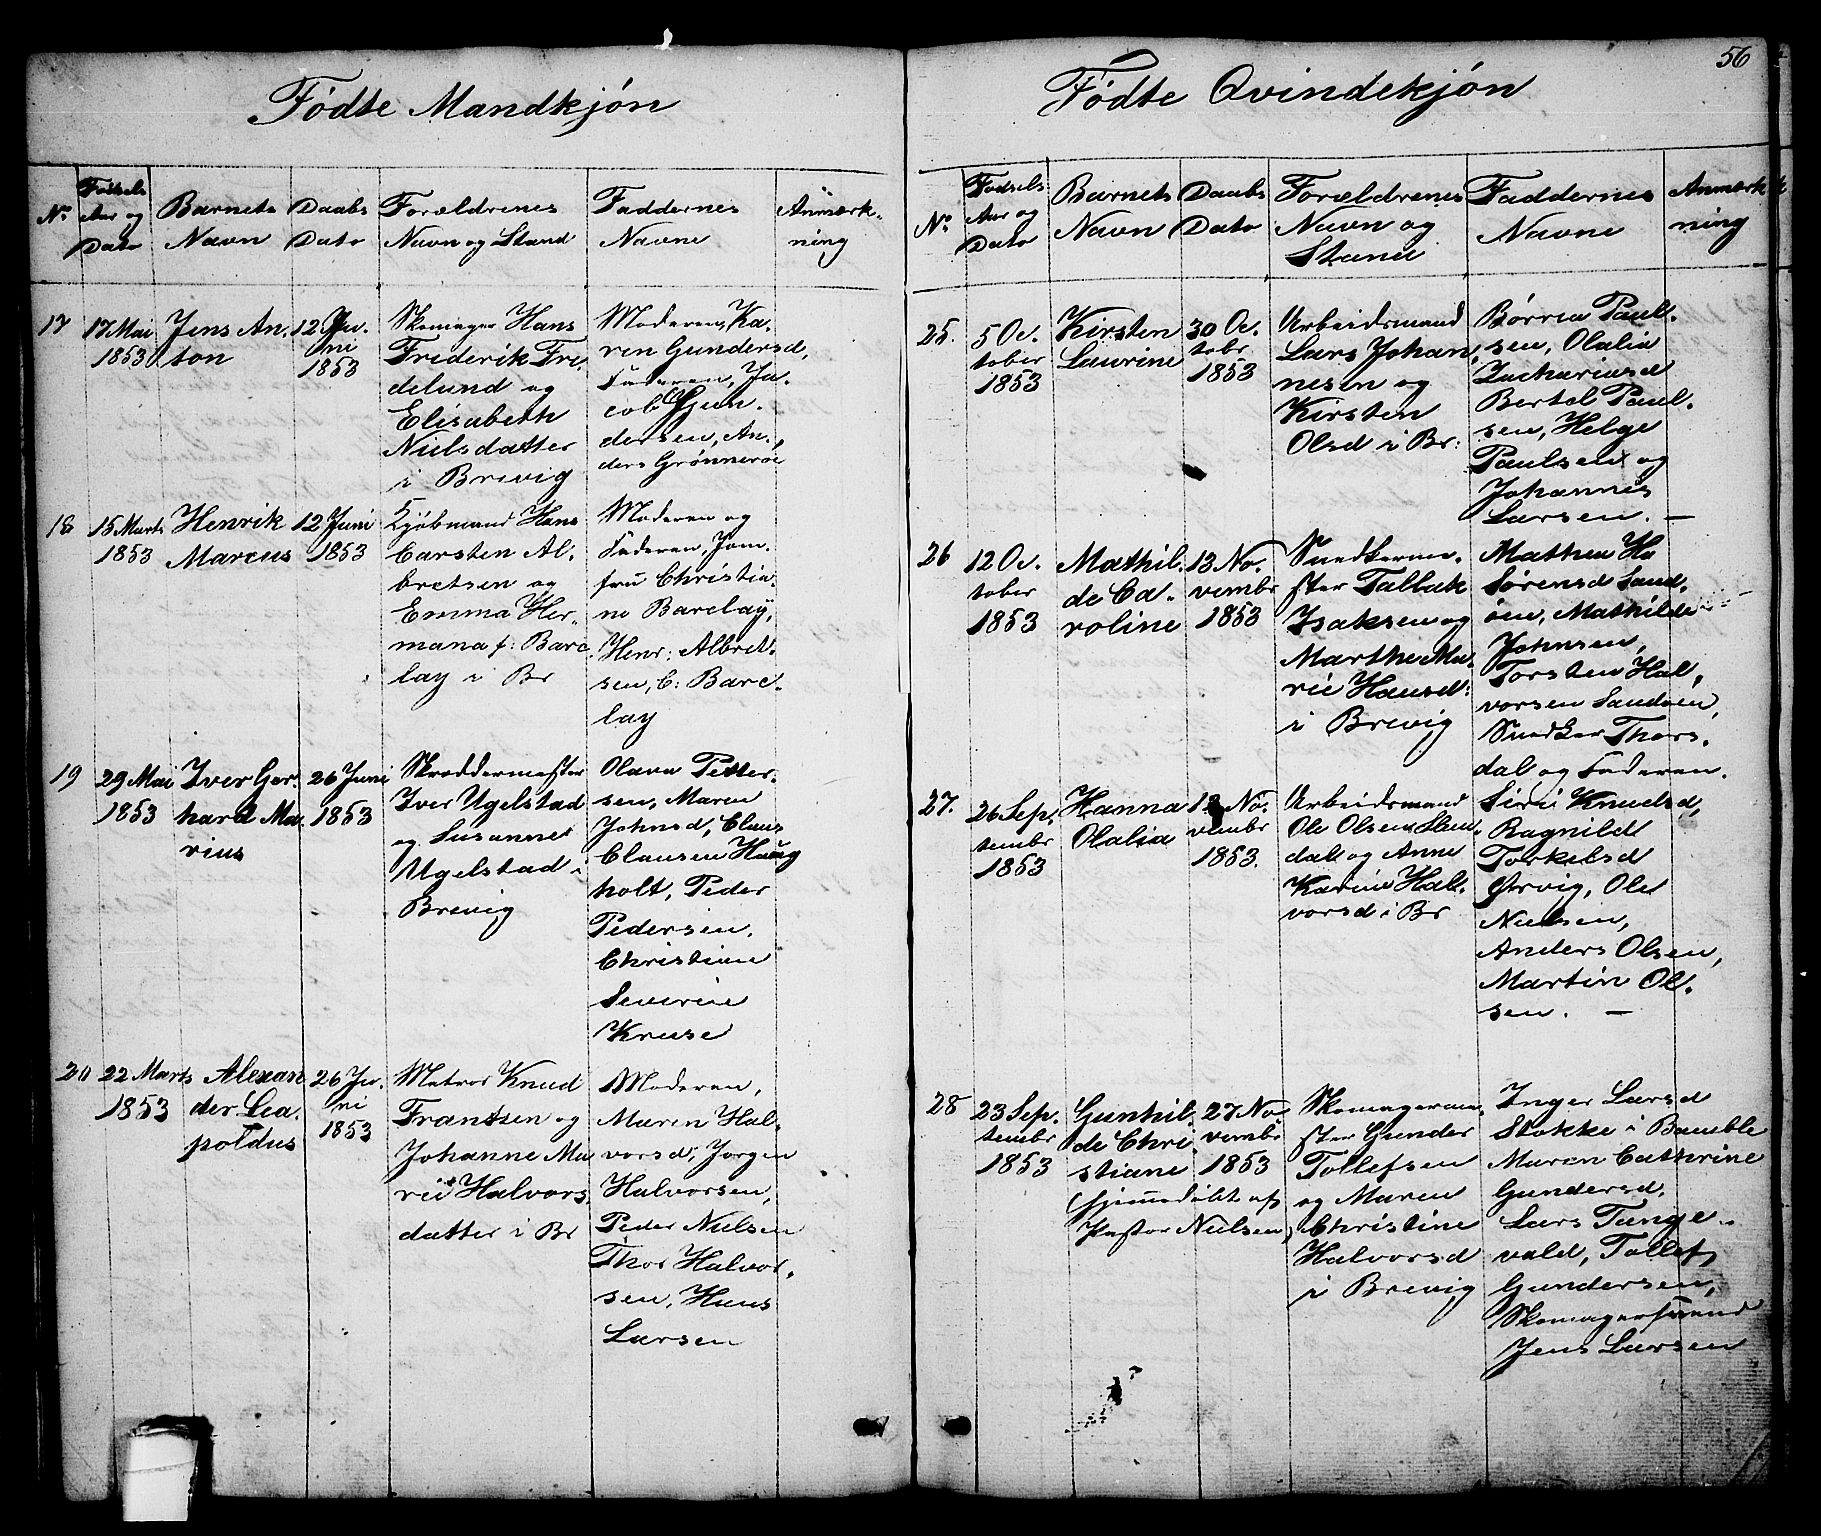 Fødte Mandkjøn
No
Fødsels
Aar og
Dato
Barnets
Navn
Daabs
Dato
Forældrenes
Navn og Stand
Faddernes
Navne
Anmærk-
ning
17
17 Mai
1853
Jens An-
ton
12 Ju-
ni
1853
Skomager Hans
Frederik Fri-
delund og
Elisabeth
Nielsdatter
i Brevig
Moderen, Ka-
ren Gundersd,
Faderen, Ja-
cob Gun-
dersen, An-
ders Grønnerøe
18
15 Marts
1853
Henrik
Marcus
12 Juni
1853
Kjøbmand Hans
Carsten Al-
bretsen og
Emma Her-
mana f: Barc
lay i Br
Moderen og
Faderen, Jom-
fru Christia-
ne Barclay,
Henr: Albret-
sen, C: Barc-
lay
19
29 Mai
1853
Iver Ger-
hard Ma-
rius
26 Juni
1853
Skreddermester
Iver Ugelstad
og Susanne
Ugelstad i
Brevig
Olava Petter-
sen, Maren
Johnsd, Claus
Clausen Haug
holt, Peder
Pedersen,
Christiane
Severine
Kruse
20
22 Marts
1853
Alexan
der Lea-
poldus
26 Ju-
ni
1853
Matros Knud
Frantsen og
Johanne Ma
rie Halvors
datter i Br
Moderen,
Maren Hal-
vorsd, Jørgen
Halvorsen,
Peder Nielsen
Thor Halvor-
sen, Hans
Larsen
56
Fødte Qvindekjøn
No
Fødsels
Aar og
Dato
Barnets
Navn
Daabs
Dato
Forældrenes
Navn og
Stand
Faddernes
Navne
Anmærk
ning
25.
5 Oc-
tober
1853
Kirsten
Laurine
30 Oc-
tobr
1853
Arbeidsmand
Lars Johan-
nesen og
Kirsten
Olsd i Br:
Børrea Paul-
sen, Olalia
Zachariasd
Bertel Paul-
sen, Helge
Paulsen og
Johannes
Larsen. —
26
12 Oc-
tober
1853
Mathil-
de Ca-
roline
13 No-
vembr
1853
Snedkerme-
ster Tallak
Isaksen og
Marthe Ma-
rie Hansd:
i Brevig
Mathea Ha
Sørensd Sand-
øen, Mathilde
Johnsen,
Torsten Hal-
vorsen Sandøen,
Snedker Thors-
dal og Faderen.
27.
26 Sep-
tembr
1853
Hanna
Olalia
13 No-
vembr
1853.
Arbeidsmand
Ole Olsen Sten-
dal og Anne
Karine Hal-
vorsd i Br
Siri Knudsd,
Ragnild
Torkelsd
Ørvig, Ole
Nielsen,
Anders Olsen,
Martin Ol-
sen. —
28
23 Sep-
tembr
1853
Gunhil-
de Chri
stiane
(hjemmedøbt af
Pastor Nielsen)
27 No-
vembr
1853
Skomagerme-
ster Gunder
Tollefsen
og Maren
Christine
Halvorsd
i Brevig
Inger Larsd
Stokke i Bamble
Maren Cathrine
Gundersd.
Lars Tange-
vald, Tollef
Gundersen,
Skomagersvend
Jens Larsen